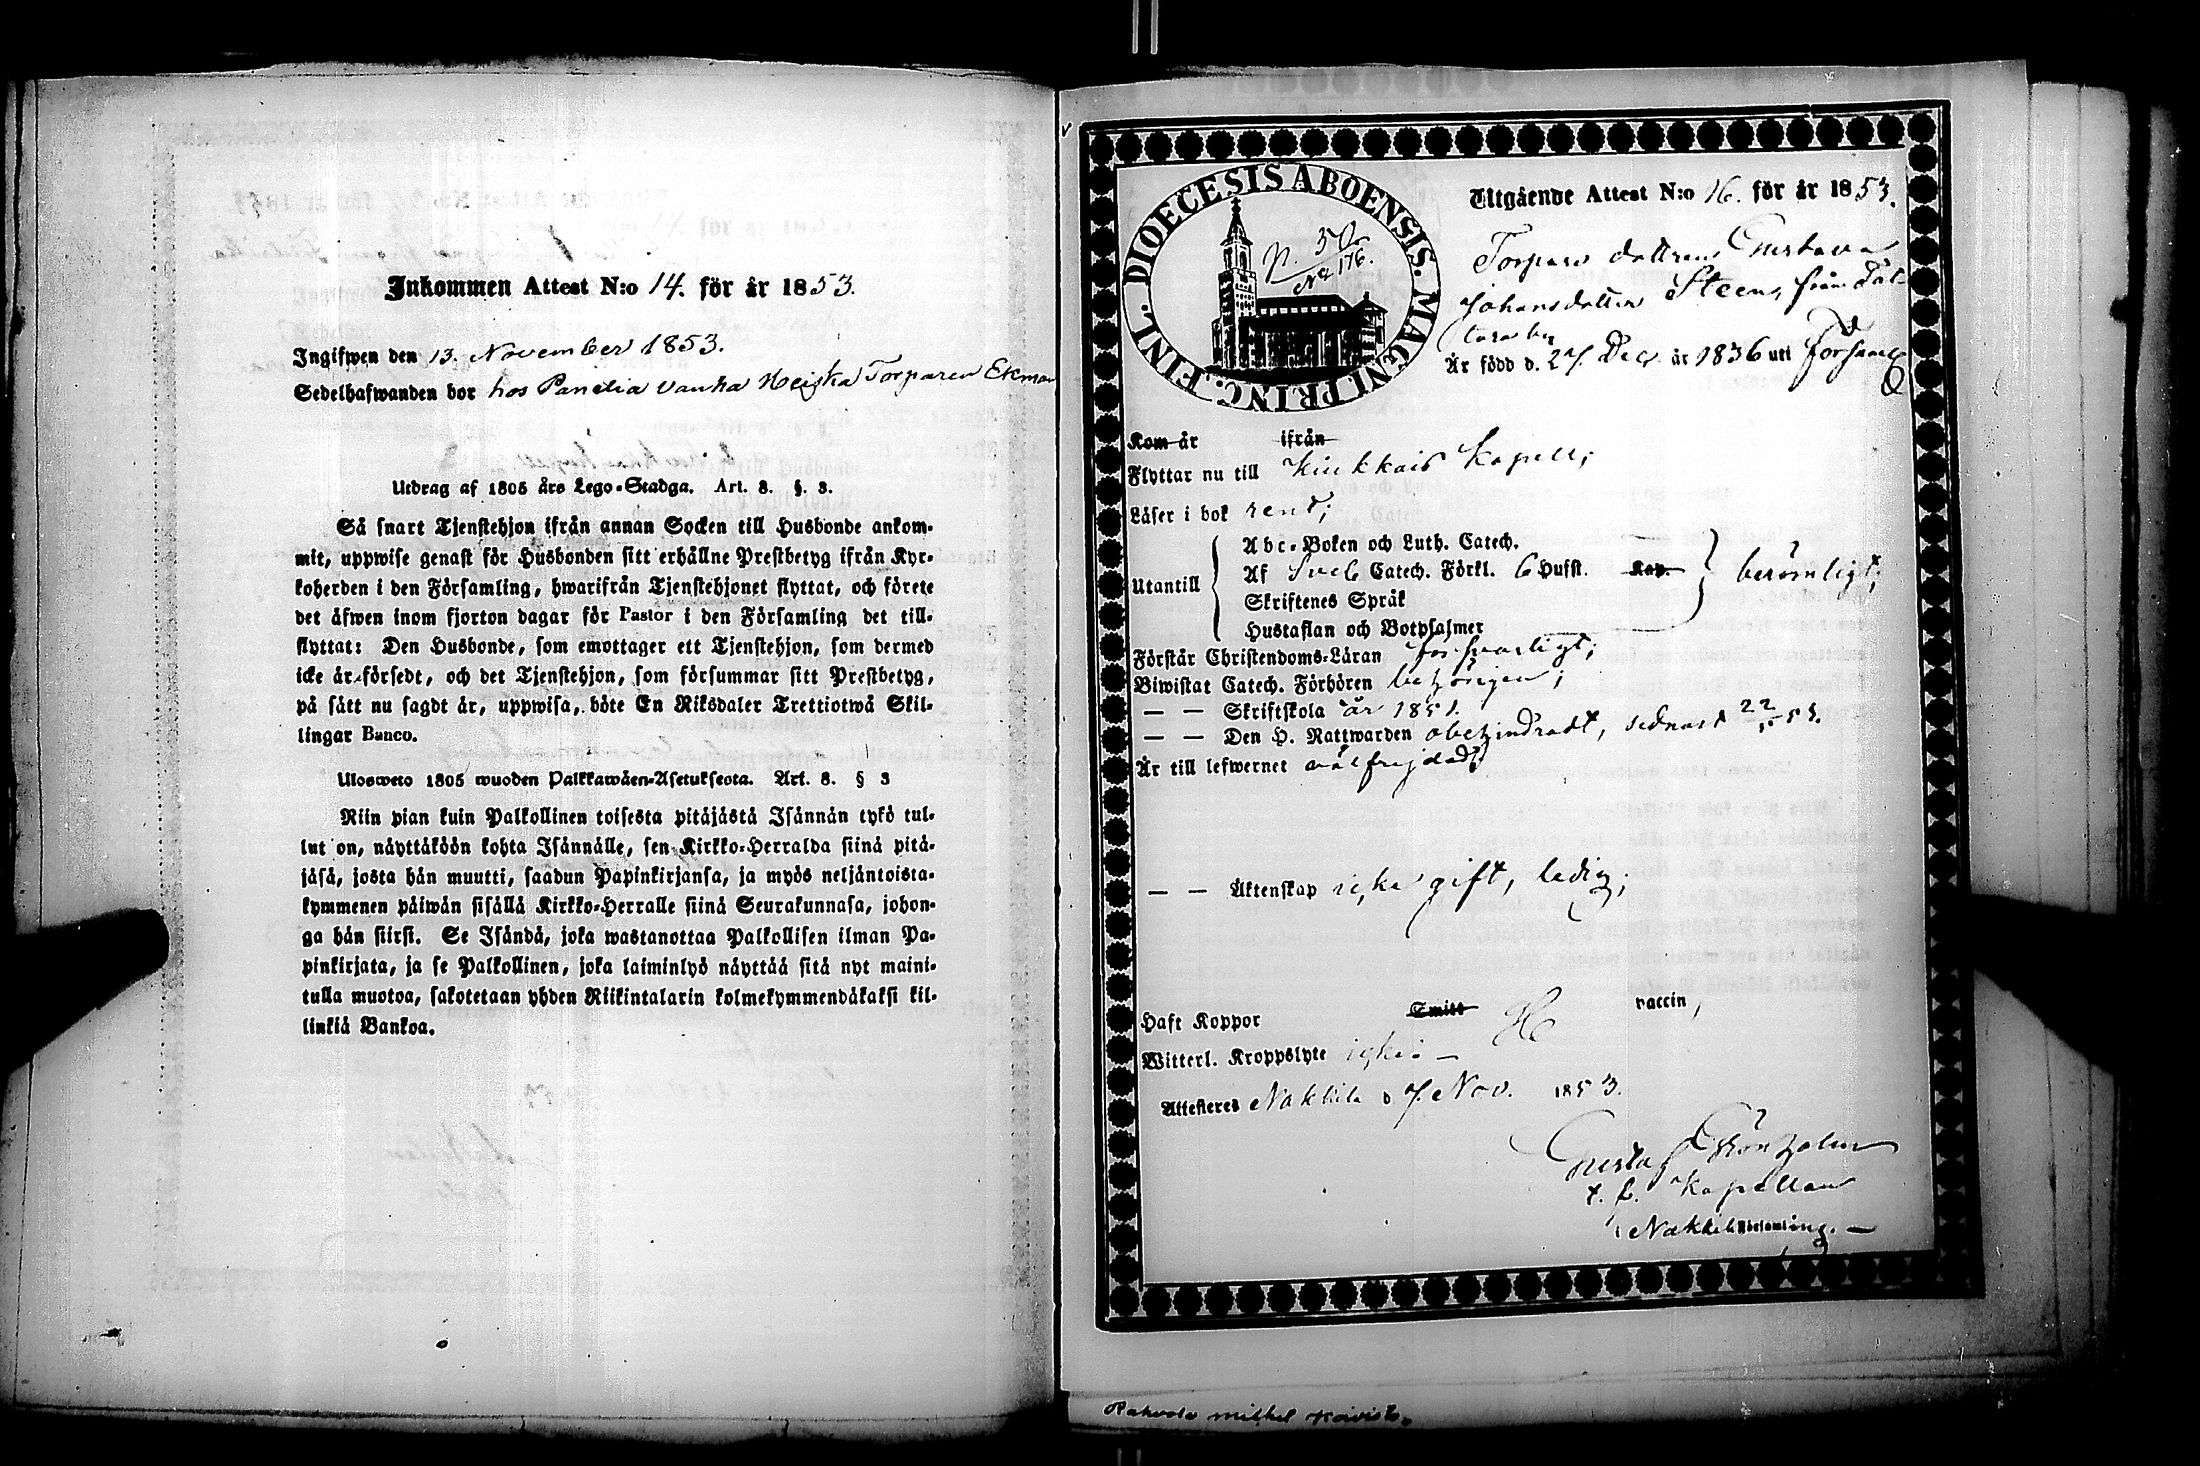 Inkommen Attest N:o 14. för år 1853.
Ingifwen den 13. November 1853.
Sedelhafwanden bor hos Panelia Vanha Heiska Torparen Ekman
Utdrag af 1805 års Lego-Stadga. Art. 8. §. 3.
Så snart Tjenstehjon ifrån annan Socken till Husbonde ankom-
mit, uppwise genast för Husbonden sitt erhållne Prestbetyg ifrån Kyr-
koherden i den Församling, hwarifrån Tjenstehjonet flyttat, och förete
det äfwen inom fjorton dagar för Pastor i den Församling det till-
flyttat: Den Husbonde, som emottager ett Tjenstehjon, som dermed
icke är försedt, och det Tjenstehjon, som försummar sitt Prestbetyg,
på sätt nu sagdt är, uppwisa, böte En Riksdaler Trettiotwå Skil-
lingar Banco.
Ulosweto 1805 wuoden Palkkawäen-Asetuksesta. Art. 8. § 3
Niin pian kuin Palkollinen toisesta pitäjästä Isännän tykö tul-
lut on, näyttäköön kohta Isännälle, sen Kirkko-Herralda siinä pitä-
jäsä, josta hän muutti, saadun Papinkirjansa, ja myös neljäntoista-
kymmenen päiwän sisällä Kirkko-Herralle siinä Seurakunnasa, johon-
ga hän siirsi. Se Isändä, joka wastanottaa Palkollisen ilman Pa-
pinkirjata, ja se Palkollinen, joka laiminlyö näyttää sitä nyt maini-
tulla muotoa, sakotetaan yhden Riikintalarin kolmekymmendäkaksi kil-
linkiä Bankoa.
DIOECESIS ABOENSIS. MAGNI PRINC. FINL.
p. 50
N:o 176.
Utgående Attest N:o 16. för år 1853.
Torpare dottren Gustava
Johansdotter Steen, från Tat-
tara by
Är född d. 27. Dec. år 1836 uti Församl
Kom år ifrån
Flyttar nu till Kiukkais Kapell;
Läser i bok rent;
Utantill
Abc-Boken och Luth. Catech.
Af Sveb Catech. Förkl. 6 Hufst. Kap.
Skriftenes Språk
Hustaflan och Botpsalmer
berömligt;
Förstår Christendoms-Läran försvarligt;
Biwistat Catech. Förhören behörigen;
— — Skriftskola år 1851.
— — Den H. Nattwarden obehindradt, sednast 22/5 53.
Är till lefwernet välfrejdad;
— — Äktenskap icke gift, ledig;
Haft Koppor Smitt vaccin,
Witterl. Kroppslyte icke. —
Attesteres Nakkila d 7. Nov. 1853.
Gustaf Grönholm
t. f. Kapellan
i Nakkila Församling. —